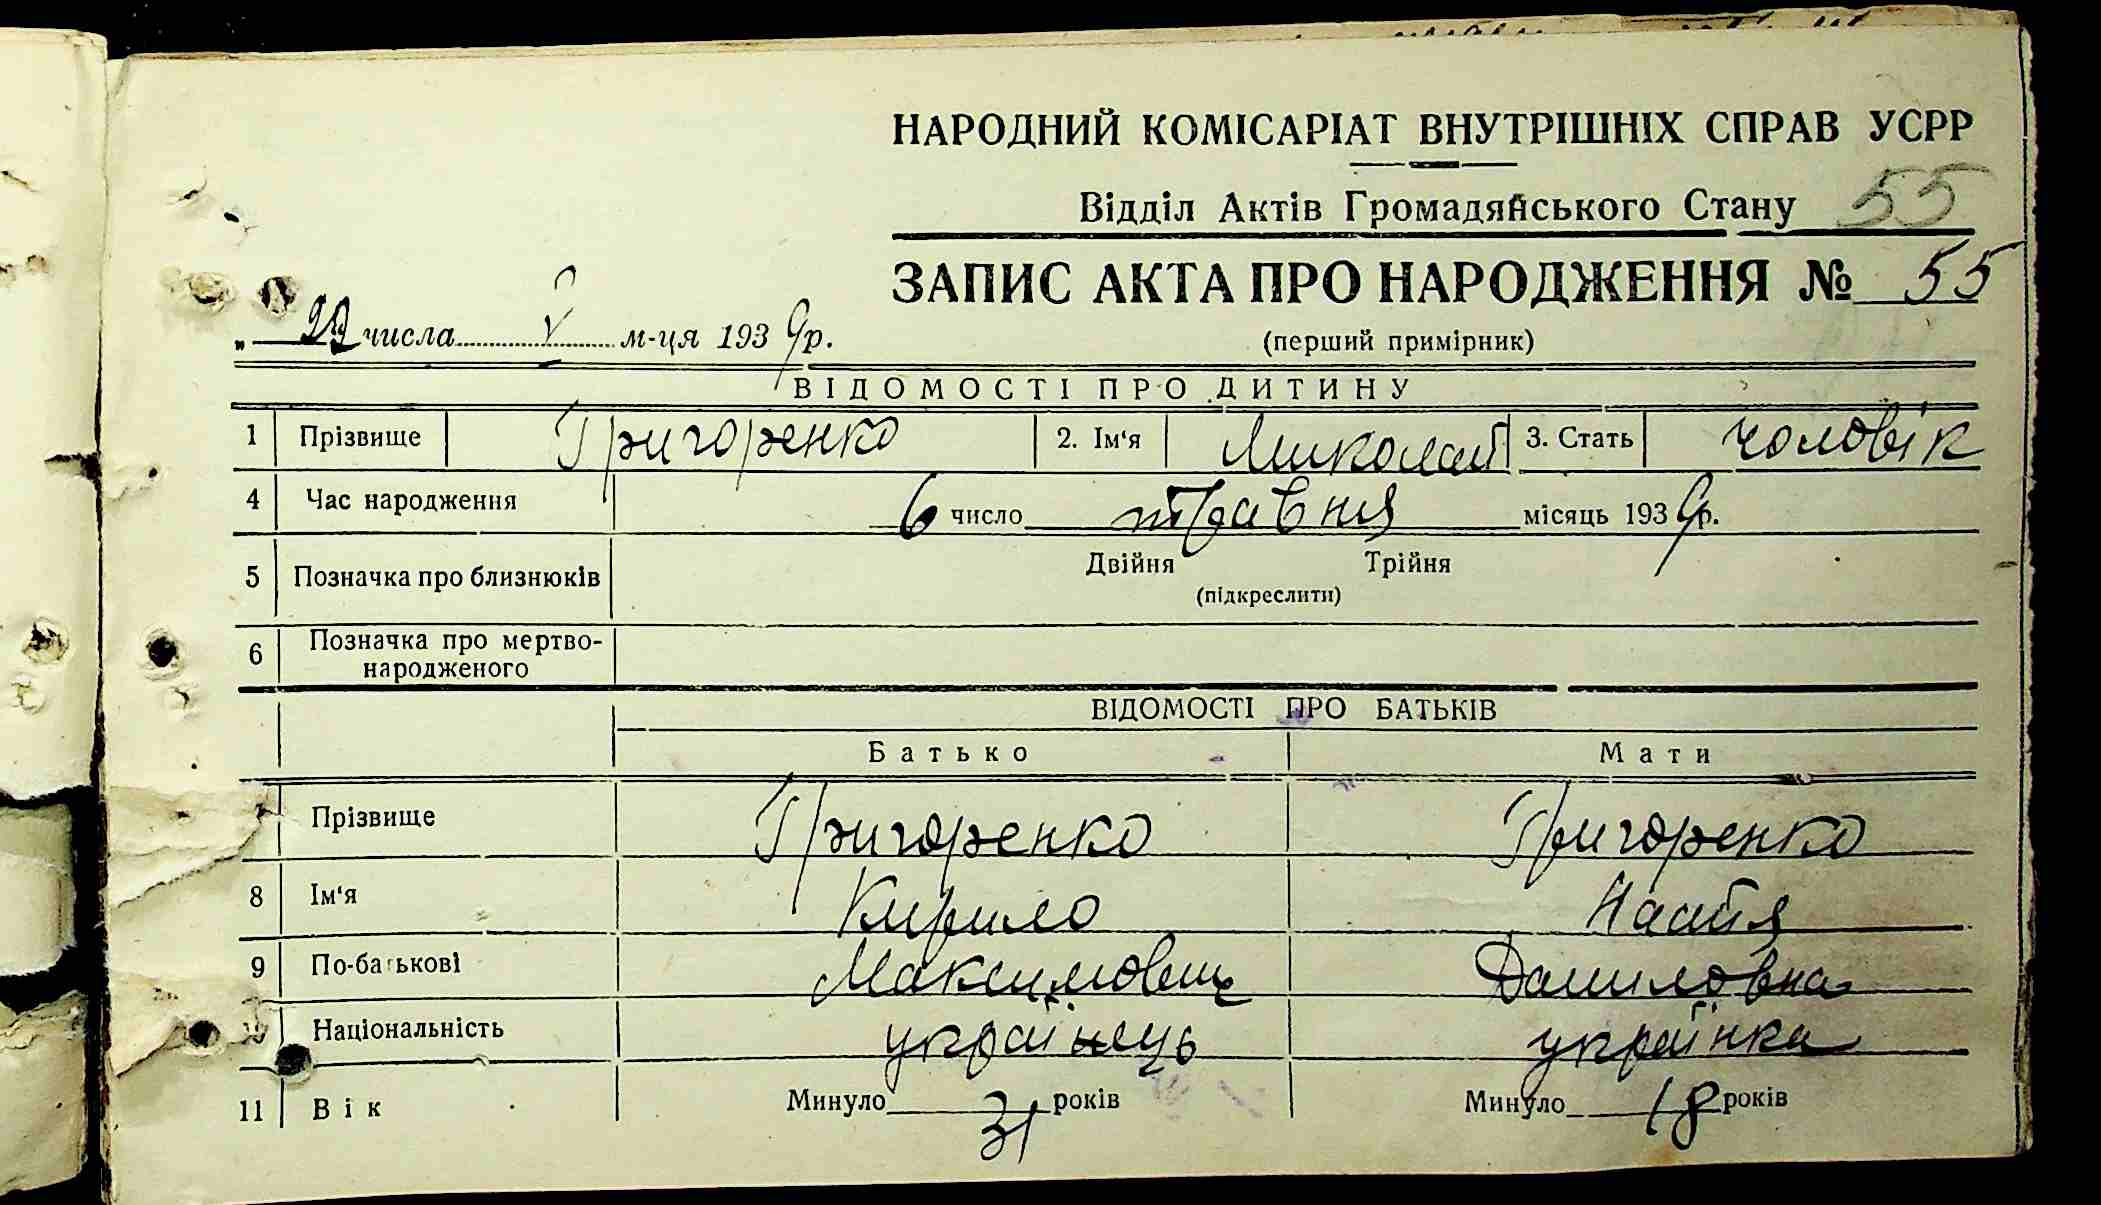 НАРОДНИЙ КОМІСАРІАТ ВНУТРІШНІХ СПРАВ УСРР
Відділ Актів Громадянського Стану 55
ЗАПИС АКТА ПРО НАРОДЖЕННЯ № 55
„ числа V м-ця 1939 р.
(перший примірник)
ВІДОМОСТІ ПРО ДИТИНУ
1 Прізвище Григоренко 2. Ім'я Миколай 3. Стать чоловік
4 Час народження 6 число травня місяць 1939 р.
5 Позначка про близнюків Двійня Трійня
(підкреслити)
6 Позначка про мертво-
народженого
ВІДОМОСТІ ПРО БАТЬКІВ
Батько Мати
7 Прізвище Григоренко Григоренко
8 Ім'я Кирило
9 По-батькові Максимович Даниловна
10 Національність українець українка
11 Вік Минуло 31 років Минуло 18 років